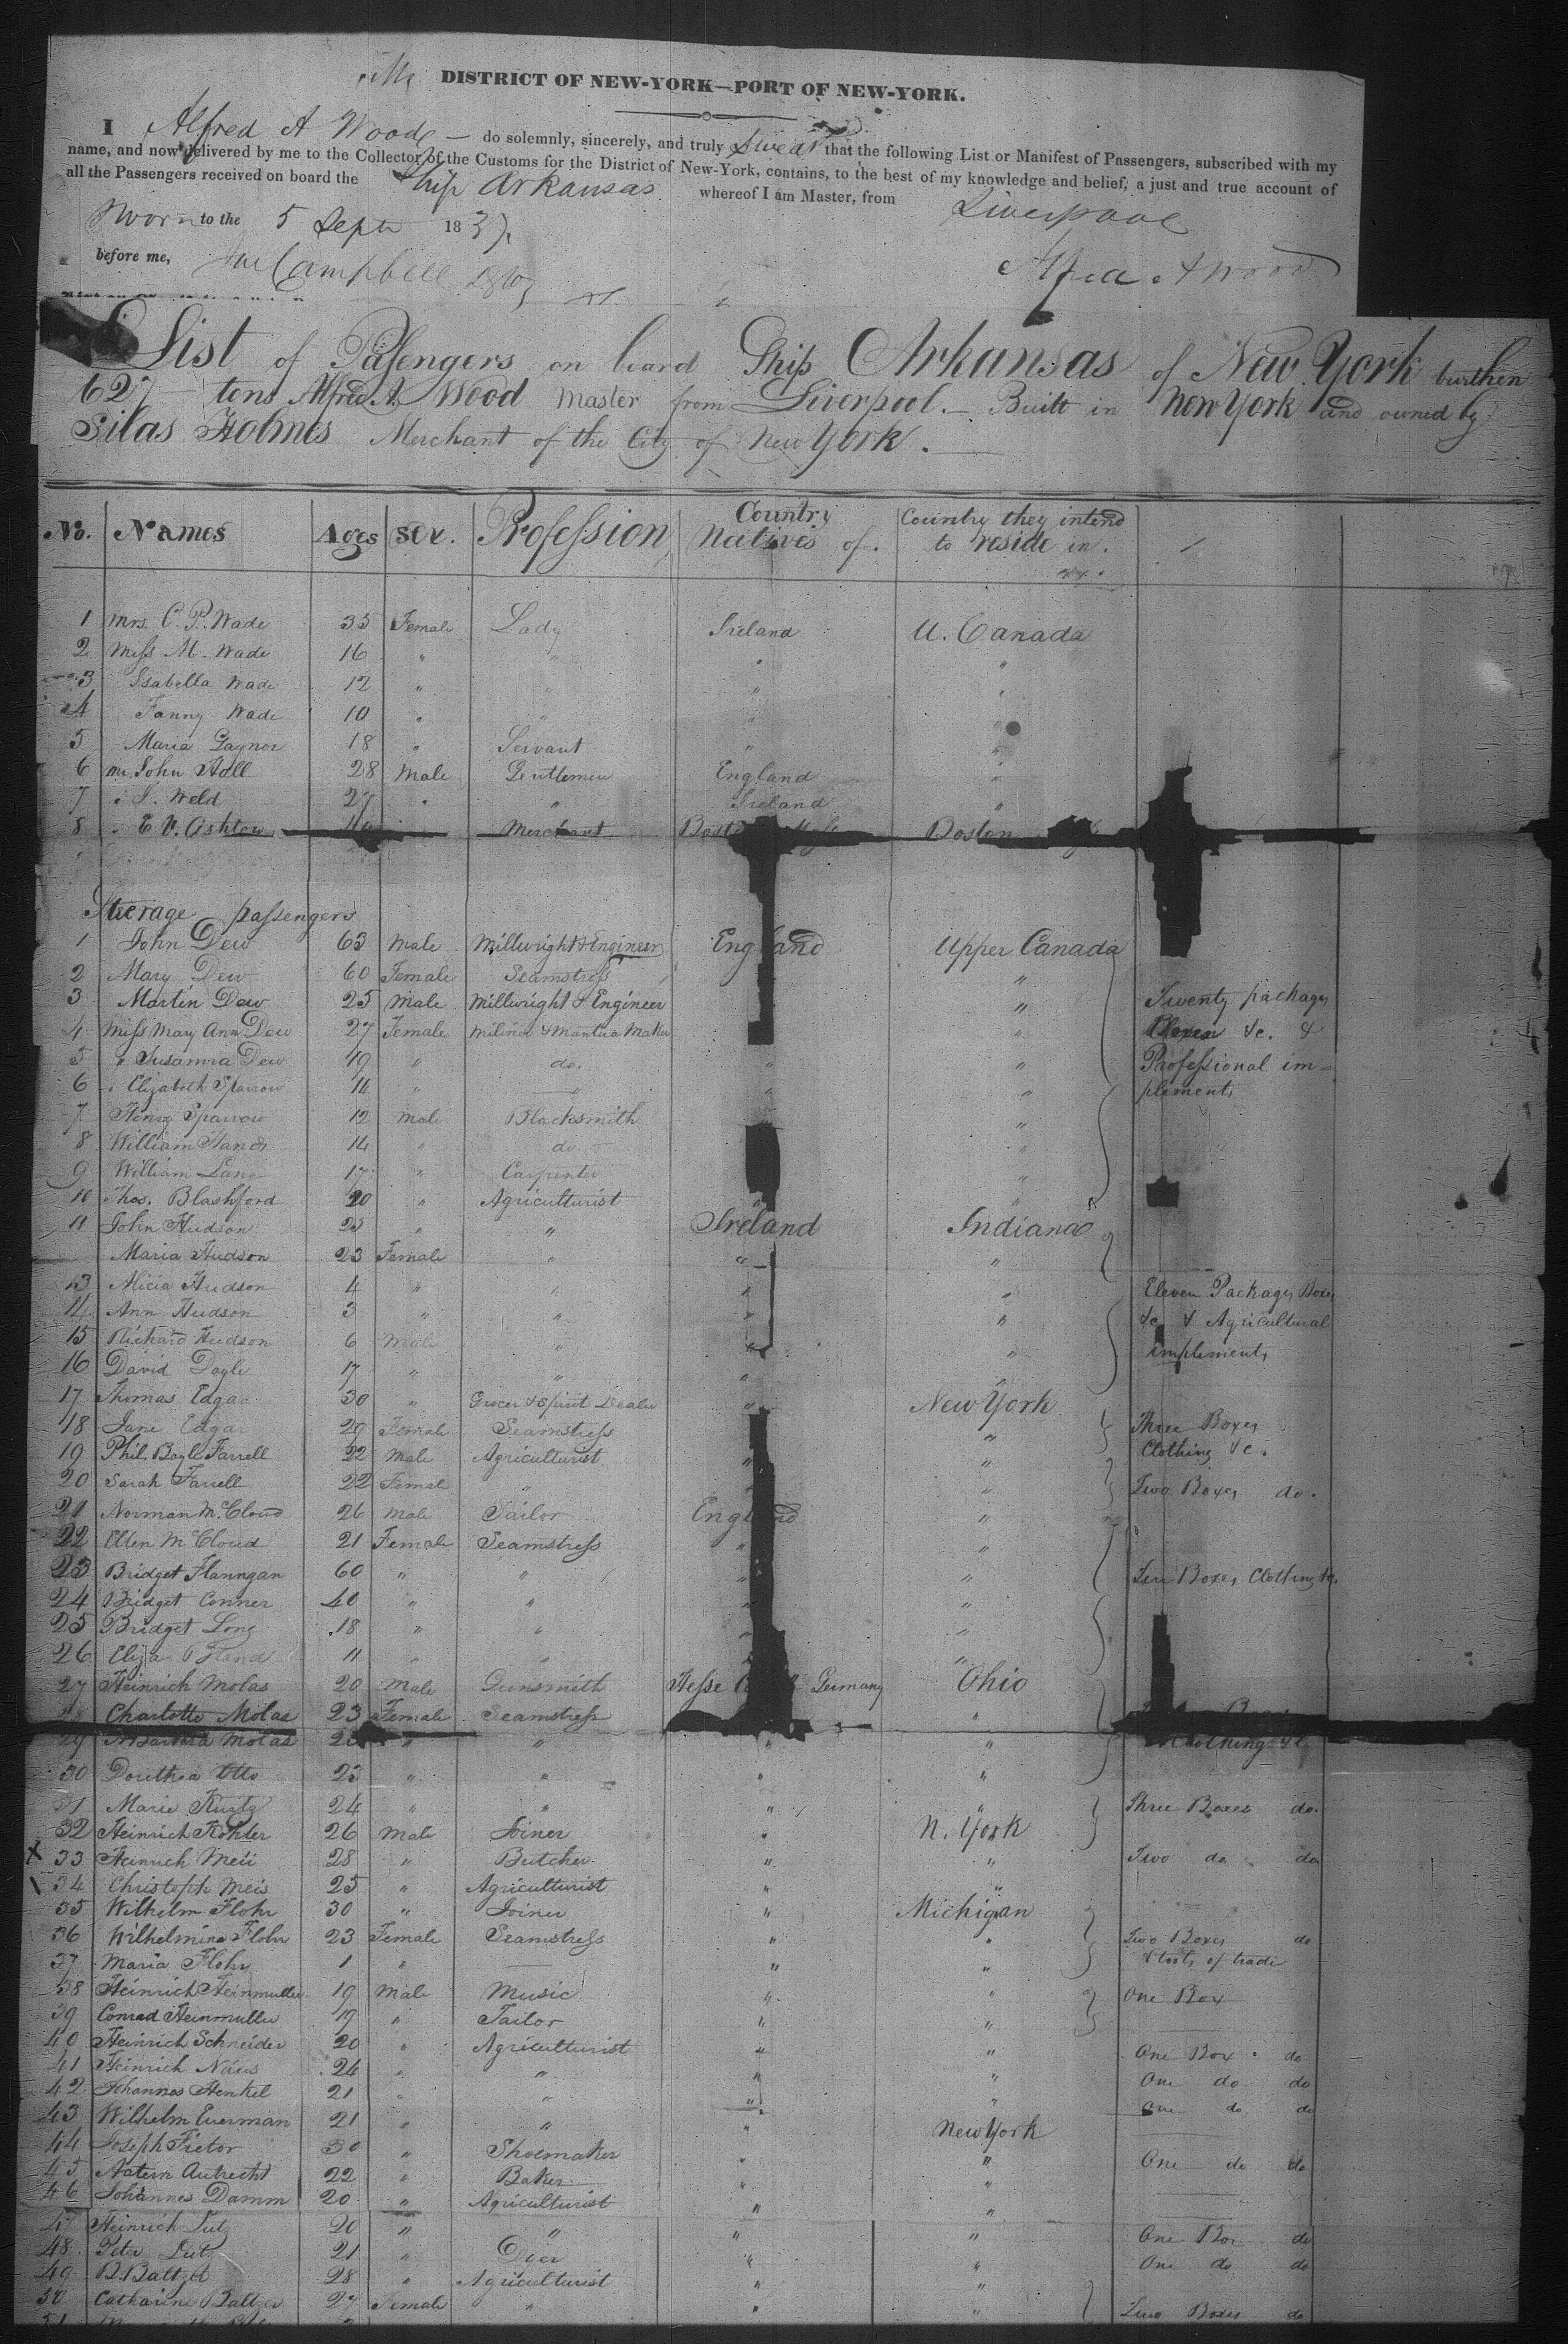 DISTRICT OF NEW-YORK—PORT OF NEW-YORK.
I Alfred A Wood — do solemnly, sincerely, and truly Swear that the following List or Manifest of Passengers, subscribed with my
name, and now delivered by me to the Collector of the Customs for the District of New-York, contains, to the best of my knowledge and belief, a just and true account of
all the Passengers received on board the Ship Arkansas whereof I am Master, from Liverpool
Sworn to the 5 Septr 1837.
before me, Campbell Alfred A Wood
List of Passengers on board Ship Arkansas of New York burthen
627 tons Alfred A. Wood Master from Liverpool. — Built in New York and owned by
Silas Holmes Merchant of the City of New York.
No. Names Ages sex. Profession Country Natives of. Country they intend to reside in.
1 Mrs. C. P. Wade 35 Female Lady Ireland U. Canada
2 Miss M. Wade 16 " " " "
3 Isabella Wade 12 " " " "
4 Fanny Wade 10 " " " "
5 Maria Gaynor 18 " Servant " "
6 Mr. John Hall 28 Male Gentlemen England "
7 " S. Weld 27 " " Ireland "
8 " E V. Ashton Merchant Boston
Steerage passengers
1 John Dew 63 Male Millwright & Engineer England Upper Canada
2 Mary Dew 60 Female Seamstress "
3 Martin Dew 25 Male Millwright & Engineer " Twenty packages
4 Miss Mary Ann Dew 27 Female Milner & Mantua Maker " Boxes &c. &
5 " Susanna Dew 19 " do. " " Professional im-
6 " Elizabeth Sparrow 11 " " " " plements
7 Henry Sparrow 12 Male Blacksmith "
8 William Hands 14 " do. "
9 William Lane 17 " Carpenter "
10 Thos. Blashford 20 " Agriculturist " "
11 John Hudson 25 " " Ireland Indiana
Maria Hudson 23 Female " " "
13 Alicia Hudson 4 " " " " Eleven Packages Boxes
14 Ann Hudson 3 " " " " &c & Agricultural
15 Richard Hudson 6 Male " " " implements
16 David Doyle 17 " " " "
17 Thomas Edgar 30 " Grocer & Spirit Dealer " New York
18 Jane Edgar 29 Female Seamstress " Three Boxes
19 Phil. Boyle Farrell 22 Male Agriculturist " " Clothing &c.
20 Sarah Farrell 22 Female " " " Two Boxes do.
21 Norman McCloud 26 Male Tailor England "
22 Ellen McCloud 21 Female Seamstress " "
23 Bridget Flanngan 60 " " " " Ten Boxes Clothing &c.
24 Bridget Conner 40 " " "
25 Bridget Long 18 " " " "
26 Eliza 11 " " "
27 Heinrich Molas 20 Male Gunsmith Hesse Germany Ohio
28 Charlotte Molas 23 Female Seamstress "
29 Molas " " " " Clothing &c
30 Dorethea Otto 23 " " " "
31 Marie Kurtz 24 " " " " Three Boxes do.
32 Heinrich Kohler 26 Male Joiner " N. York
33 Heinrich Meii 28 " Butcher " " Two do do
34 Christoph Meis 25 " Agriculturist " "
35 Wilhelm Flohr 30 " Joiner " Michigan
36 Wilhelmina Flohr 23 Female Seamstress " " Two Boxes do
37 Maria Flohr 1 " — " " & tools of trade
38 Heinrich Heinmuller 19 Male Music " " One Box
39 Conrad Heinmuller 19 " Tailor " "
40 Heinrich Schneider 20 " Agriculturist " " One Box do
41 Heinrich 24 " " " " One do do
42 Johannes Henkel 21 " " " " One do do
43 Wilhelm Euerman 21 " " " New York
44 Joseph Fretor 30 " Shoemaker " " One do do
45 Autrecht 22 " Baker " "
46 Johannes Damm 20 " Agriculturist " "
47 Heinrich Lutz 20 " " " " One Box do
48 Peter Lutz 21 " Dyer " " One do do
49 Baltzel 28 " Agriculturist " "
50 Catharine Baltzer 27 Female " " " Two Boxes do
51